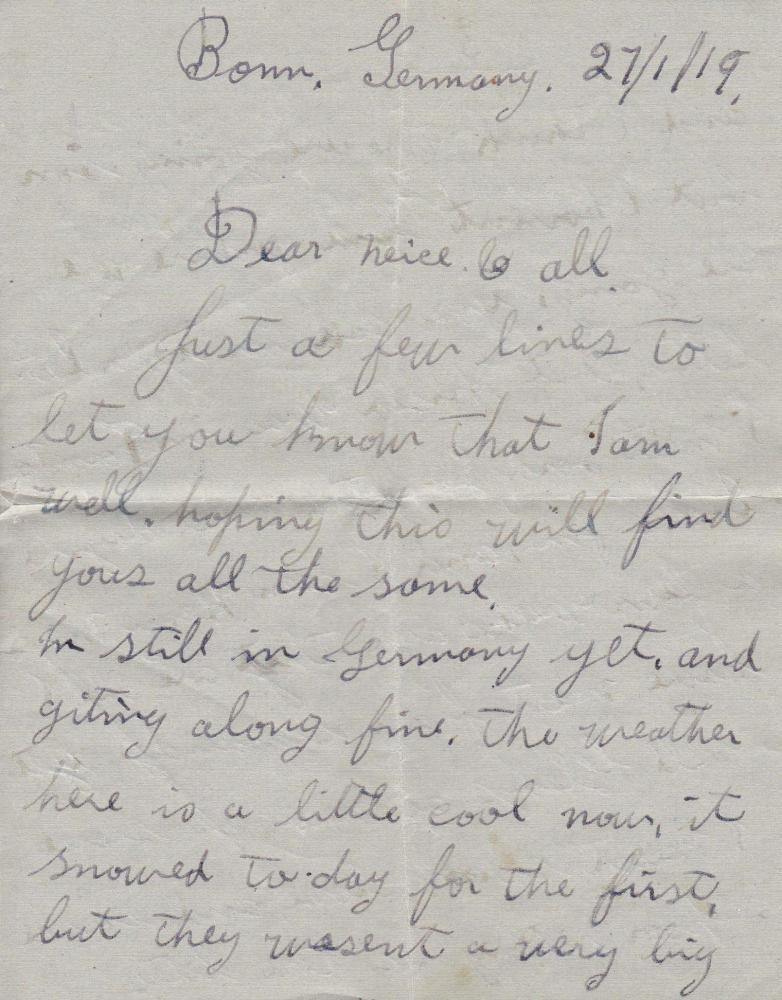 Bonn, Germany. 27/1/19,
Dear neice & all
Just a few lines to
let you know that I am
well, hoping this will find
yous all the same,
Im still in Germany yet, and
giting along fine. The weather
here is a little cool now, it
snowed to-day for the first,
but they wasent a very big